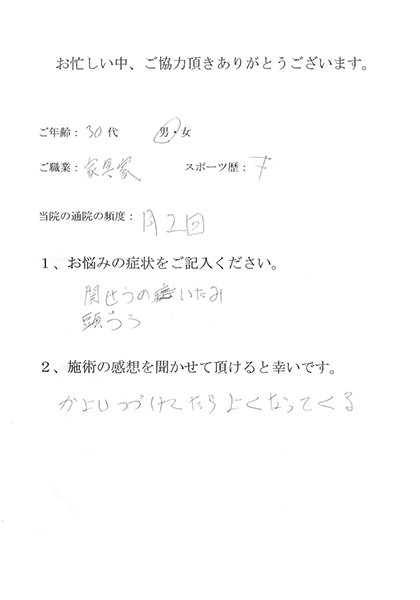 お忙しい中、ご協力頂きありがとうございます。
ご年齢：30代　男・女
ご職業：家具家　スポーツ歴：
当院の通院の頻度：月2回
１、お悩みの症状をご記入ください。
関せつのいたみ
頭つう
２、施術の感想を聞かせて頂けると幸いです。
かよいつづけてたらよくなってくる